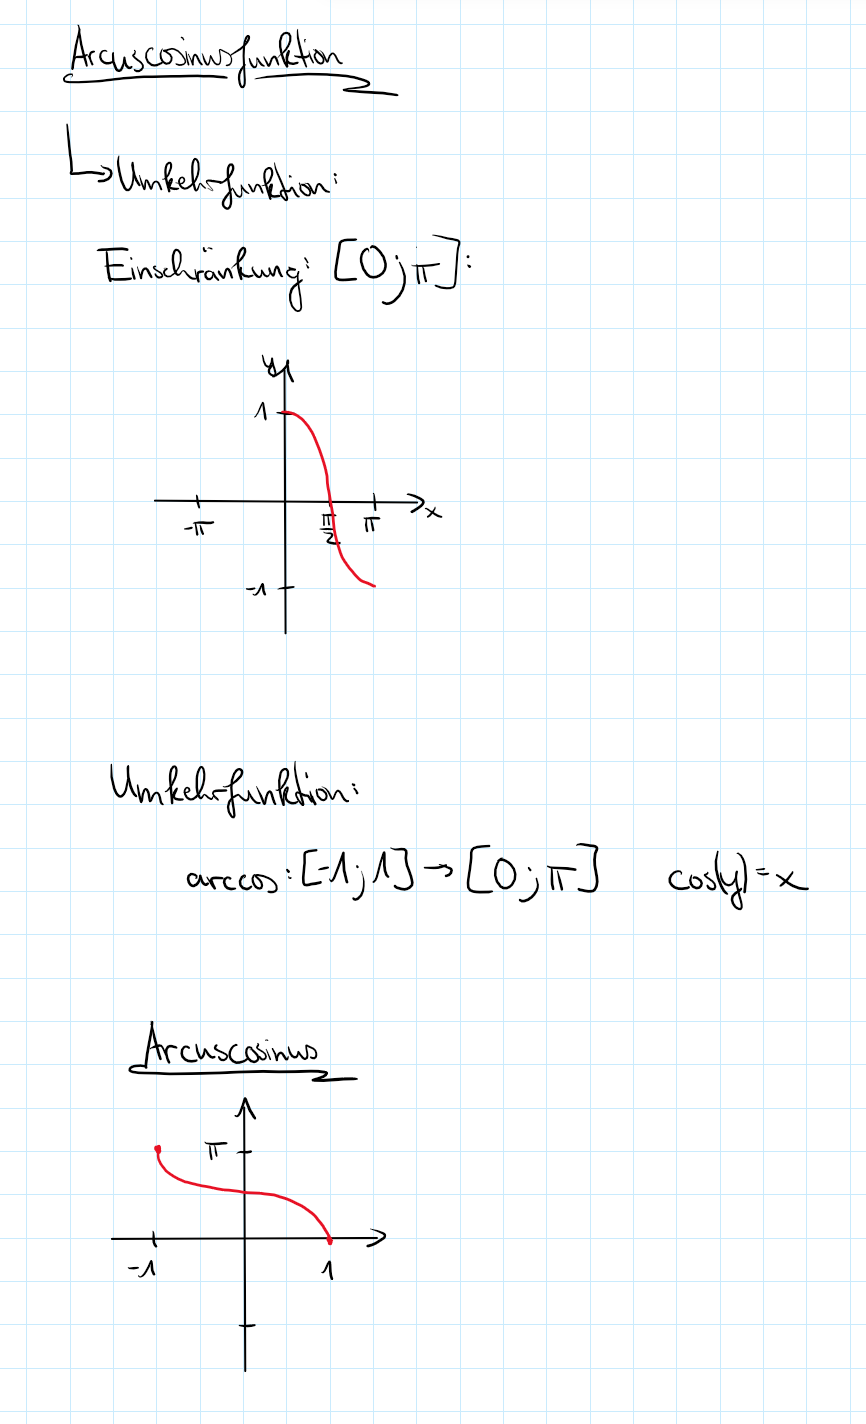 Arcuscosinusfunktion
Umkehrfunktion:
Einschränkung: [0;π]:
y
1
-π
π/2
π
x
-1
Umkehrfunktion:
arccos: [-1;1] → [0;π] cos(y)=x
Arcuscosinus
π
-1
1